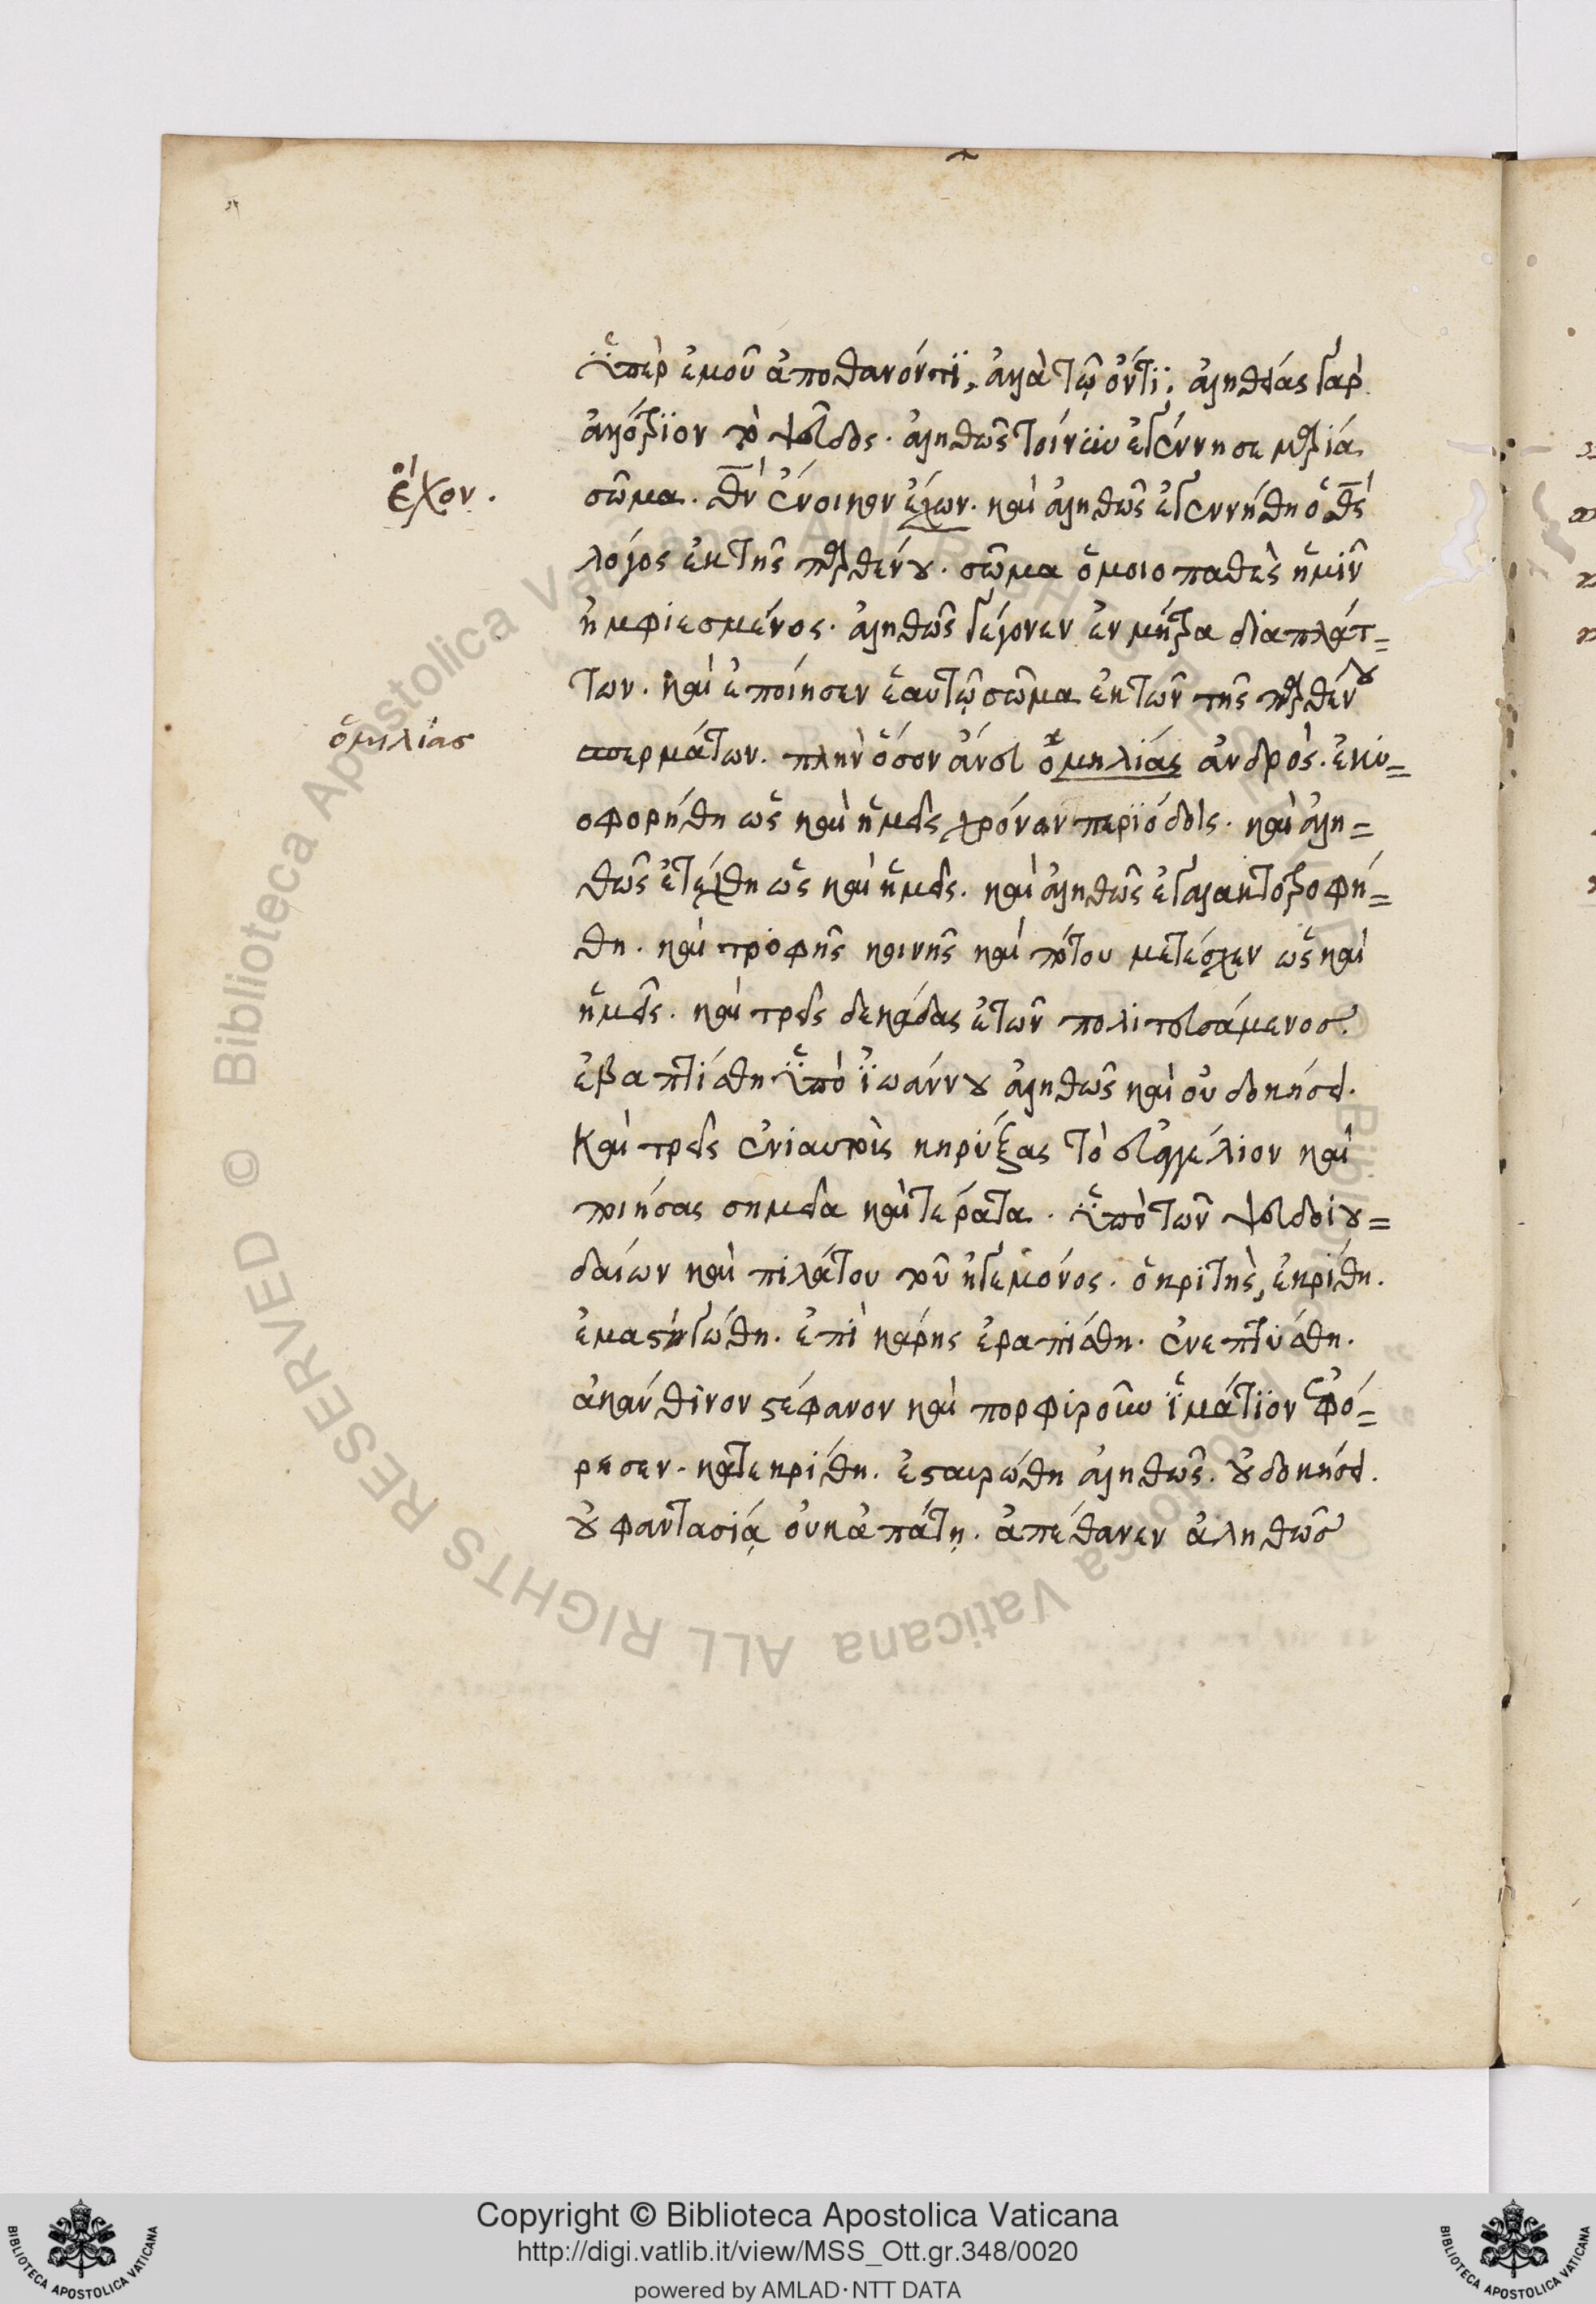 ὑπὲρ ἐμοῦ ἀποθανόντϊ, ἀλλὰ τῷ ὄντϊ; ἀληθείας γὰρ
ἀλλότριον τὸ ψεῦδος. ἀληθῶς τοίνϋν ἐγέννησε μαρία
σῶμα. θν ἔνοικον ἔχων. καὶ ἀληθῶς ἐγεννήθη ὁ θς
ἔχον.
λόγος ἐκ τῆς παρθένου. σῶμα ὁμοιοπαθὲς ἡμῖν
ἠμφιεσμένος. ἀληθῶς γέγονεν ἐν μήτρα διαπλάτ=
των. καὶ ἐποίησεν ἑαυτῷ σῶμα ἐκ τῶν τῆς παρθένου
ὁμιλίας
σπερμάτων. πλὴν ὅσον ἄνευ ὁμηλίας ἀνδρὸς. ἐκυ=
οφορήθη ὡς καὶ ἡμεῖς χρόνων περϊόδοις. καὶ ἀλη=
θῶς ἐτέχθη ὡς καὶ ἡμεῖς. καὶ ἀληθῶς ἐγαλακτοτροφή=
θη. καὶ τροφῆς κοινῆς καὶ πότου μετέσχεν ὡς καὶ
ἡμεῖς. καὶ τρεῖς δεκάδας ἐτῶν πολιτευσάμενος.
ἐβαπτίσθη ὑπὸ ἰωάννου ἀληθῶς καὶ οὐ δοκήσει.
Καὶ τρεῖς ἐνιαυτοὺς κηρύξας τὸ εὐαγγέλιον καὶ
ποιήσας σημεῖα καὶ τέρατα. ὑπὸ τῶν ψευδοϊου=
δαίων καὶ πιλάτου τοῦ ἡγεμόνος. ὁ κριτὴς, ἐκρίθη.
ἐμαστιγώθη. ἐπὶ κόρης ἐραπίσθη. ἐνεπτύσθη.
ἀκάνθινον στέφανον καὶ πορφιροῦν ἱμάτϊον ἐφό=
ρεσεν. κατεκρίθη. ἐσταυρώθη ἀληθῶς. οὐ δοκήσει.
οὐ φαντασίᾳ οὐκ ἀπάτῃ. ἀπέθανεν ἀληθῶς
© Biblioteca Apostolica Vaticana ALL RIGHTS RESERVED
© Biblioteca Apostolica Vaticana ALL RIGHTS RESERVED
Copyright © Biblioteca Apostolica Vaticana
http://digi.vatlib.it/view/MSS_Ott.gr.348/0020
powered by AMLAD·NTT DATA
BIBLIOTECA APOSTOLICA VATICANA
BIBLIOTECA APOSTOLICA VATICANA